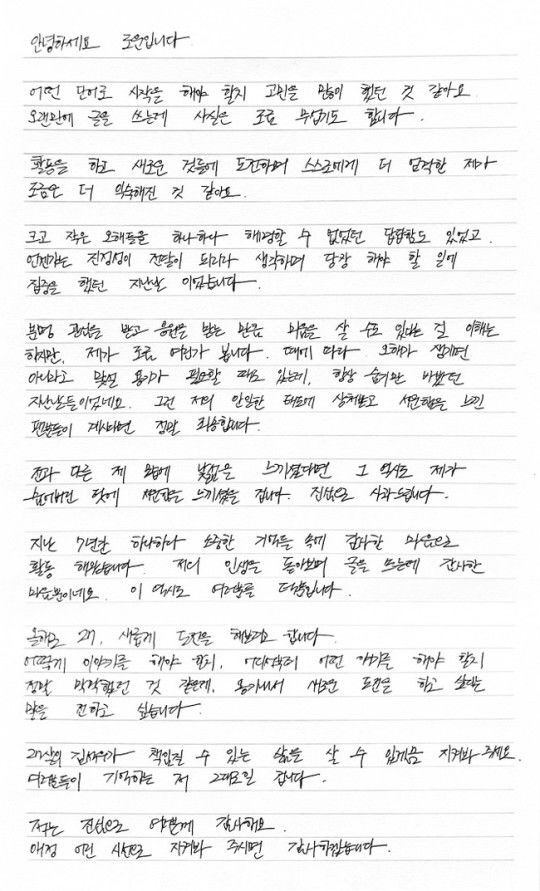 안녕하세요 로운입니다
어떤 단어로 시작을 해야 할지 고민을 많이 했던 것 같아요
오랜만에 글을 쓰는데 사실은 조금 무섭기도 합니다.
활동을 하고 새로운 것들에 도전하며 스스로에게 더 엄격한 제가
조금은 더 익숙해진 것 같아요.
크고 작은 오해들을 하나하나 해명할 수 없었던 답답함도 있었고
언젠가는 진정성이 전달이 되리라 생각하며 당장 해야 할 일에
집중을 했던 지난날 이었습니다.
분명 관심을 받고 응원을 받는 만큼 미움을 살 수도 있다는 걸 이해는
하지만, 제가 조금 여린가 봅니다. 때에 따라 오해가 생기면
아니라고 맞설 용기가 필요할 때도 있는데, 항상 숨기만 바빴던
지난날들이었네요. 그런 저의 안일한 태도에 상처받고 서운함을 느낀
팬분들이 계시다면 정말 죄송합니다.
전과 다른 제 모습에 낯섦을 느끼셨다면 그 역시도 제가
숨어버린 탓에 서운함을 느끼셨을 겁니다. 진심으로 사과드립니다.
지난 7년간 하나하나 소중한 기억들 속에 감사한 마음으로
활동 해왔습니다. 저의 인생을 돌아보며 글을 쓰는데 감사한
마음뿐이네요. 이 역시도 여러분들 덕분입니다.
올해로 27, 새롭게 도전을 해보려고 합니다.
어떻게 이야기를 해야 할지, 어디서부터 어떤 얘기를 해야 할지
정말 막막했던 것 같은데, 용기내서 새로운 도전을 하고 싶다는
말을 전하고 싶습니다.
27살의 김석우가 책임질 수 있는 삶을 살 수 있게끔 지켜봐 주세요.
여러분들이 기억하는 저 그대로일 겁니다.
저는 진심으로 여러분께 감사해요.
애정 어린 시선으로 지켜봐 주시면 감사하겠습니다.